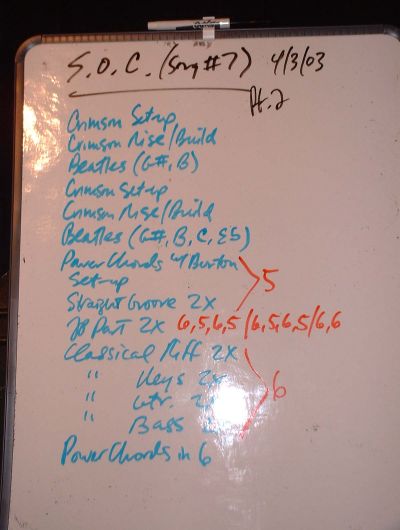 S.O.C. (Song #7) 4/3/03
Pt. 2
Crimson Set-up
Crimson Rise/Build
Beatles (G#, B)
Crimson Set-up
Crimson Rise/Build
Beatles (G#, B, C, E5)
Power Chords w/ Burton
Set-up
5
Straight Groove 2x
JB Part 2x 6,5,6,5/6,5,6,5/6,6
Classical Riff 2x
" Keys 2x
6
" Gtr. 2x
" Bass
Power Chords in 6